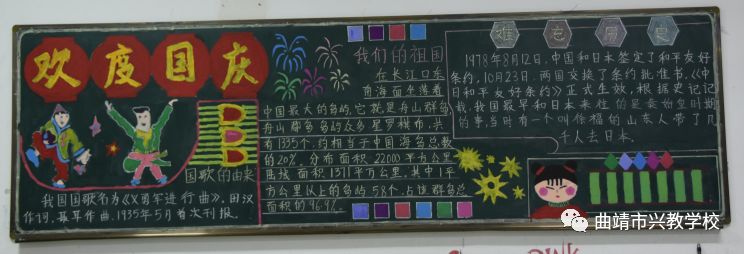 欢度国庆
国歌的由来
我国国歌名为《义勇军进行曲》。田汉
作词,聂耳作曲,1935年5月首次刊报。
我们的祖国
在长江口东
南海面坐落着
中国最大的岛屿,它就是舟山群岛
舟山群岛岛屿众多星罗棋布,共
有1335个,约相当于中国海岛总数
的20%,分布面积22000平方公里
陆域面积1371平方公里。其中1平
方公里以上的岛屿58个,占该群岛总
面积的96.9%。
难忘历史
1978年8月12日,中国和日本签定了和平友好
条约,10月23日,两国交换了条约批准书,《中
日和平友好条约》正式生效,根据史记记
载,我国最早和日本来往的是秦始皇时期
的事,当时有一个叫徐福的山东人带了几
千人去日本。
曲靖市兴教学校